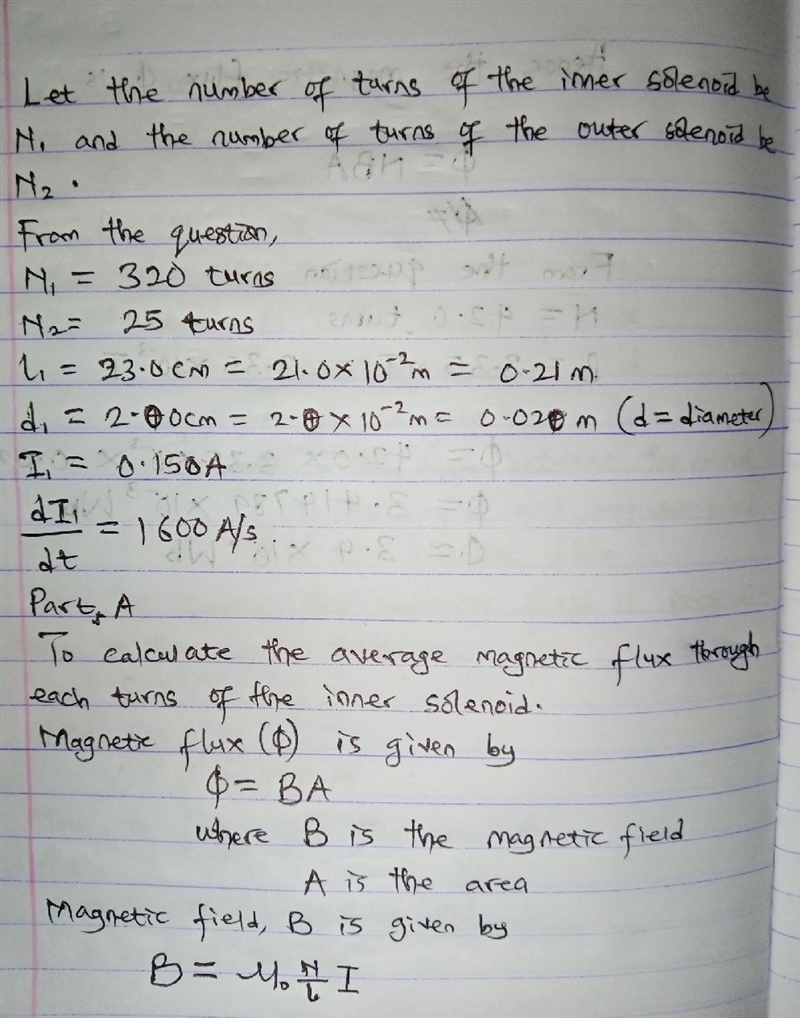 Let the number of turns of the inner solenoid be
N₁ and the number of turns of the outer solenoid be
N₂.
From the question,
N₁ = 320 turns
N₂ = 25 turns
l₁ = 23.0cm = 21.0×10⁻²m = 0.21m
d₁ = 2.00cm = 2.0×10⁻²m = 0.020 m (d = diameter)
I₁ = 0.150A
dI₁/dt = 1600 A/s.
Part A
To calculate the average magnetic flux through
each turns of the inner solenoid.
Magnetic flux (ϕ) is given by
ϕ = BA
where B is the magnetic field
A is the area
Magnetic field, B is given by
B = μ₀ N/l I